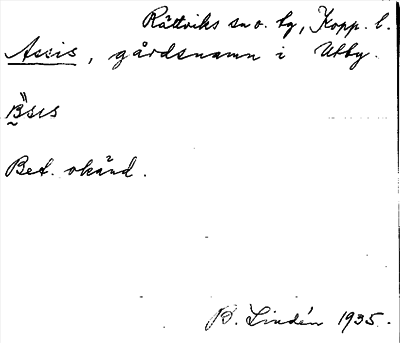 Rättviks sn o. by, Kopp. l.
Assis, gårdsnamn i Utby.
Bet. okänd.
B. Lindén 1935.